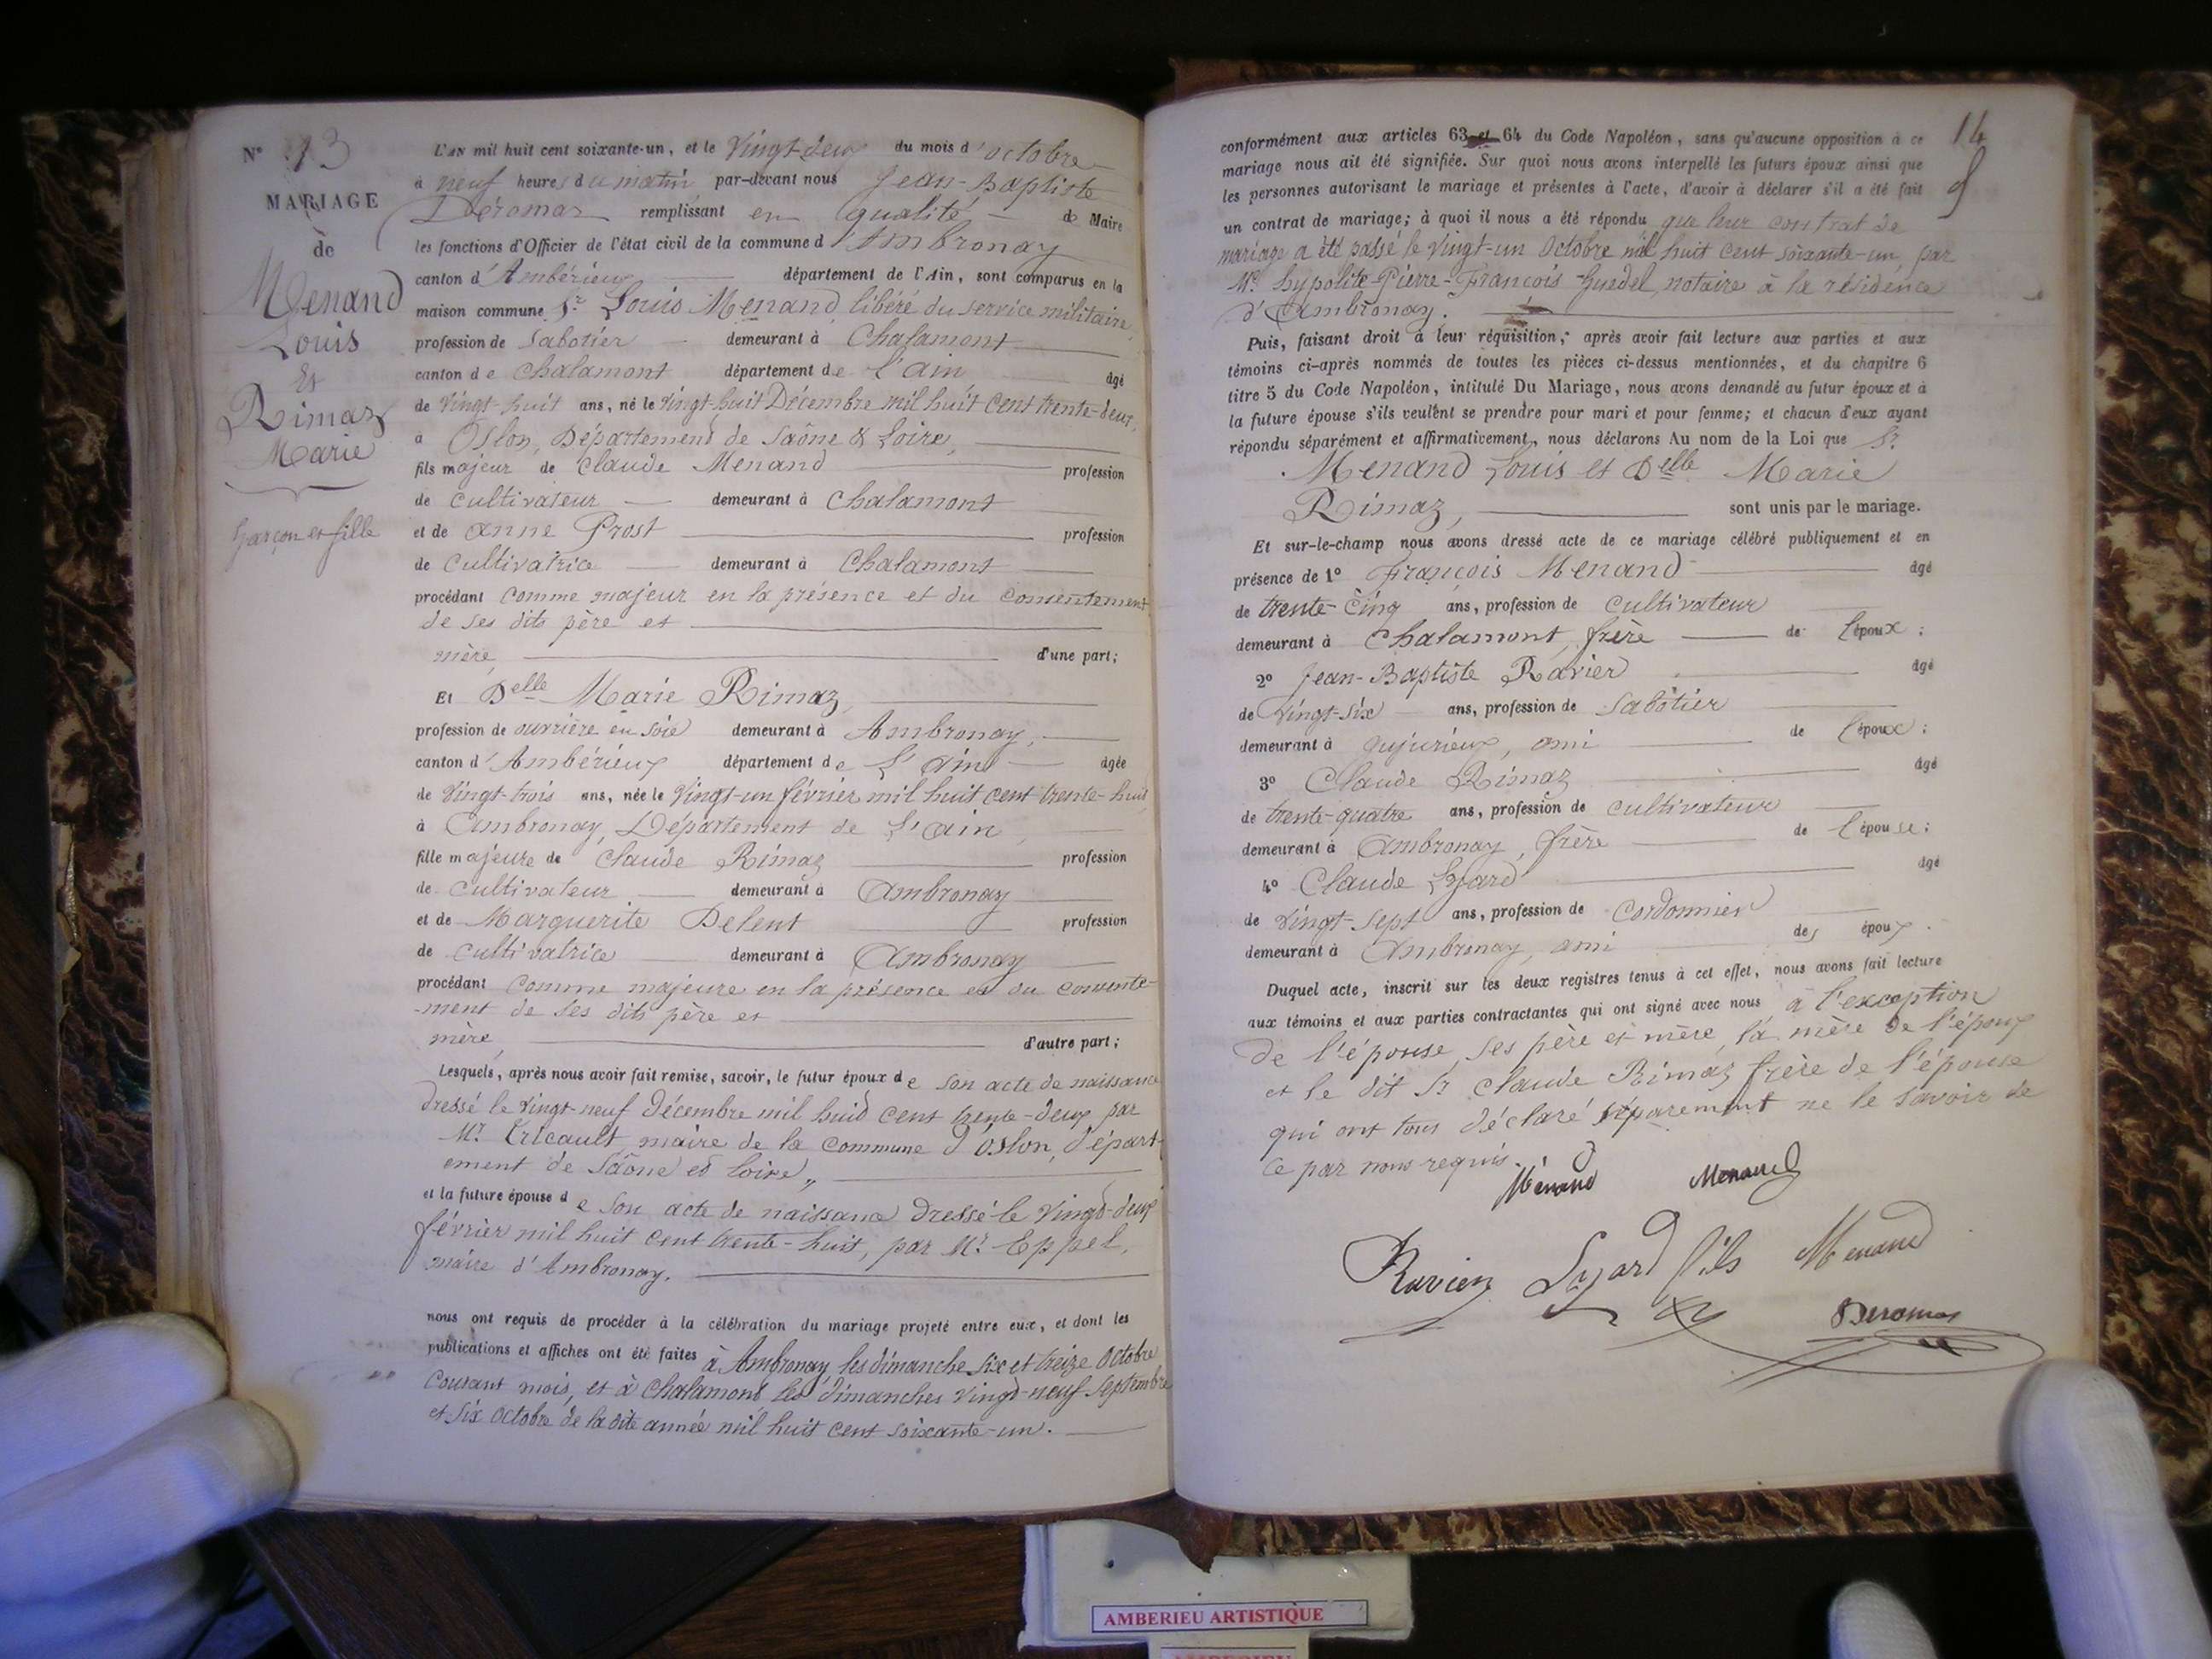 N° 13
MARIAGE
de
Menand
Louis
Et
Rimaz
Marie
garçon et fille
L'AN mil huit cent soixante-un, et le Vingt-deux du mois d'octobre
à neuf heures du matin par-devant nous Jean-Baptiste
Déromas remplissant en qualité de Maire
les fonctions d'Officier de l'état civil de la commune d'Ambronay
canton d'Ambérieux département de l'Ain, sont comparus en la
maison commune Sr Louis Menand libéré du service militaire,
profession de Sabotier demeurant à Chalamont
canton de Chalamont département de l'Ain âgé
de Vingt-huit ans, né le Vingt-huit Décembre mil huit cent trente-deux,
à Oslon, Département de Saône & Loire,
fils majeur de Claude Menand profession
de Cultivateur demeurant à Chalamont
et de Anne Prost profession
de Cultivatrice demeurant à Chalamont
procédant Comme majeur en la présence et du consentement
de ses dits père et
mère, d'une part;
Et Delle Marie Rimaz,
profession de ouvrière en soie demeurant à Ambronay,
canton d'Ambérieux département de l'Ain âgée
de Vingt-trois ans, née le Vingt-un février mil huit cent trente-huit
à Ambronay, Département de l'Ain,
fille majeure de Claude Rimaz profession
de Cultivateur demeurant à Ambronay
et de Marguerite Delent profession
de Cultivatrice demeurant à Ambronay
procédant Comme majeure en la présence et du consente-
-ment de ses dits père et
mère, d'autre part;
Lesquels, après nous avoir fait remise, savoir, le futur époux de son acte de naissance
dressé le Vingt-neuf Décembre mil huit cent trente-deux par
Mr Tricault, maire de la commune d'Oslon, départ-
ement de Saône et Loire,,
et la future épouse de son acte de naissance Dressé le Vingt-deux
février mil huit cent trente-huit, par Mr Eppel,
maire d'Ambronay.
nous ont requis de procéder à la célébration du mariage projeté entre eux, et dont les
publications et affiches ont été faites à Ambronay, les dimanche six et treize Octobre
Courant mois, et à Chalamont les dimanches Vingt-neuf Septembre
et six Octobre de la dite année mil huit cent soixante-un.
14
conformément aux articles 63 et 64 du Code Napoléon, sans qu'aucune opposition à ce
mariage nous ait été signifiée. Sur quoi nous avons interpellé les futurs époux ainsi que
les personnes autorisant le mariage et présentes à l'acte, d'avoir à déclarer s'il a été fait
un contrat de mariage; à quoi il nous a été répondu que leur contrat de
mariage a été passé le Vingt-un Octobre mil huit cent soixante-un, par
Me hypolite-Pierre-François Guedel, notaire à la résidence
d'Ambronay.
Puis, faisant droit à leur réquisition; après avoir fait lecture aux parties et aux
témoins ci-après nommés de toutes les pièces ci-dessus mentionnées, et du chapitre 6
titre 5 du Code Napoléon, intitulé Du Mariage, nous avons demandé au futur époux et à
la future épouse s'ils veulent se prendre pour mari et pour femme; et chacun d'eux ayant
répondu séparément et affirmativement, nous déclarons Au nom de la Loi que Sr
Menand Louis et Delle Marie
Rimaz, sont unis par le mariage.
Et sur-le-champ nous avons dressé acte de ce mariage célébré publiquement et en
présence de 1° François Menand âgé
de trente-cinq ans, profession de Cultivateur
demeurant à Chalamont, frère de l'époux;
2° Jean-Baptiste Ravier âgé
de Vingt-six ans, profession de Sabotier
demeurant à Jujurieux, ami de l'époux;
3° Claude Rimaz âgé
de trente-quatre ans, profession de Cultivateur
demeurant à Ambronay, frère de l'épouse;
4° Claude Lyard âgé
de Vingt-sept ans, profession de Cordonnier
demeurant à Ambronay, ami des époux.
Duquel acte, inscrit sur les deux registres tenus à cet effet, nous avons fait lecture
aux témoins et aux parties contractantes qui ont signé avec nous à l'exception
de l'épouse, ses père et mère, la mère de l'époux
et le dit Sr Claude Rimaz frère de l'épouse
qui ont tous déclaré séparement ne le savoir de
ce par nous requis.
Menand Menand
Ravier Lyard fils Menand
Deromas
AMBERIEU ARTISTIQUE
AMBERIEU